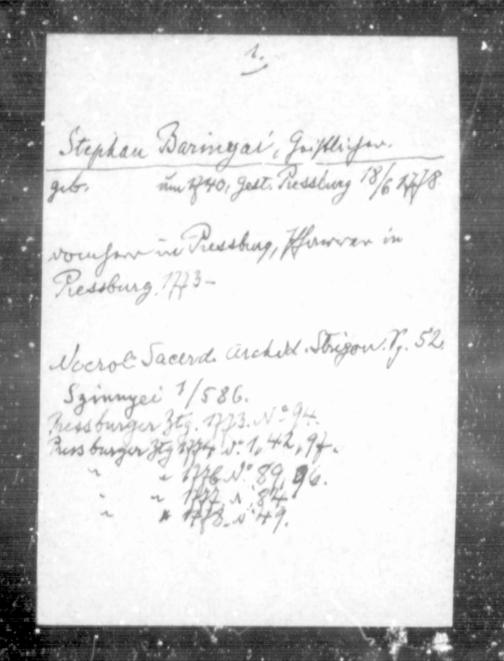 1.
Stephan Baringai, Geistlicher.
geb. um 1740, gest. Pressburg 18/6 1778
Domherr in Pressburg, Pfarrer in
Pressburg 1773-
Necrol. Sacerd. Archid. Strigon. Pg. 52.
Szinnyei 1/586.
Pressburger Ztg. 1773. No 94.
Pressburger Ztg 1774 No 1, 42, 97.
" " 1776 No 89, 96.
" " 1777 N. 84
" " 1778. N 49.